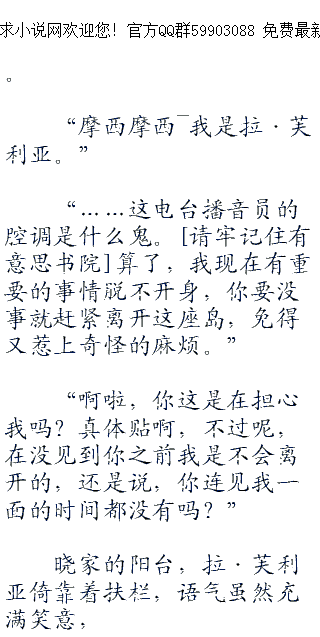 求小说网欢迎您！官方QQ群59903088 免费最新
。
“摩西摩西¯我是拉·芙
利亚。”
“……这电台播音员的
腔调是什么鬼。[请牢记住有
意思书院]算了，我现在有重
要的事情脱不开身，你要没
事就赶紧离开这座岛，免得
又惹上奇怪的麻烦。”
“啊啦，你这是在担心
我吗？真体贴啊，不过呢，
在没见到你之前我是不会离
开的，还是说，你连见我一
面的时间都没有吗？”
晓家的阳台，拉·芙利
亚倚靠着扶栏，语气虽然充
满笑意，